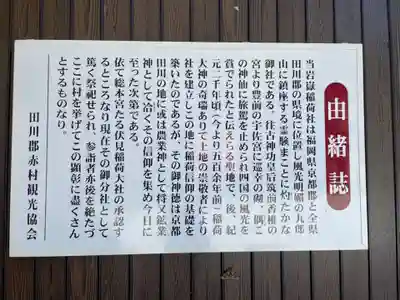 由緒誌
当岩嶽稲荷社は福岡県京都郡と全県
田川郡の県境に位置し風光明媚の九郎
山に鎮座する霊験まことに灼たかな
御社である。往古神功皇后筑前香椎の
宮より豊前の宇佐宮に巡幸の砌、偶こ
の神仙に旅駕を止められ四囲の風光を
賞でられたと伝えらる聖地で、後、紀
元二千年頃(今より五百余年前)稲荷
大神の奇瑞ありて土地の崇敬者により
社を建立しこの地に稲荷信仰の基礎を
築いたのであるが、その御神徳は京都
田川の地に或は農業神として将又鉱業
神として冶くその信仰を集め今日に
至った次第である。
依て総本宮たる伏見稲荷大社の承認す
るところなり現在その御分社として
篤く祭祀せられ、参詣者亦後を絶たづ
ここに村を挙げてこの顕彰に盡くさん
とするものなり。
田川郡赤村観光協会